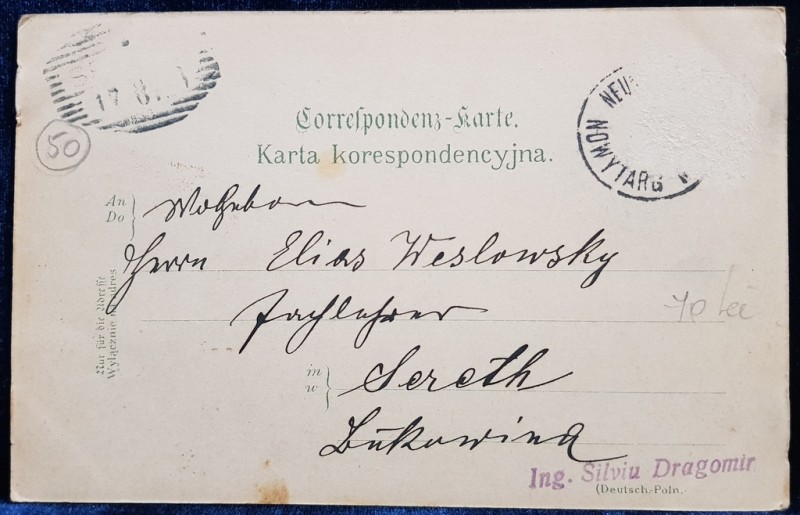 17 8
50
NEU
NOWYTARG
Correspondenz-Karte.
Karta korespondencyjna.
An
Do
Wohlgeboren
Herrn Elias Weslowsky
Fachlehrer
70 lei
in
w
Sereth
Bukowina
Nur für die Adresse
Wyłącznie na adres
Ing. Silviu Dragomir
(Deutsch.-Poln.